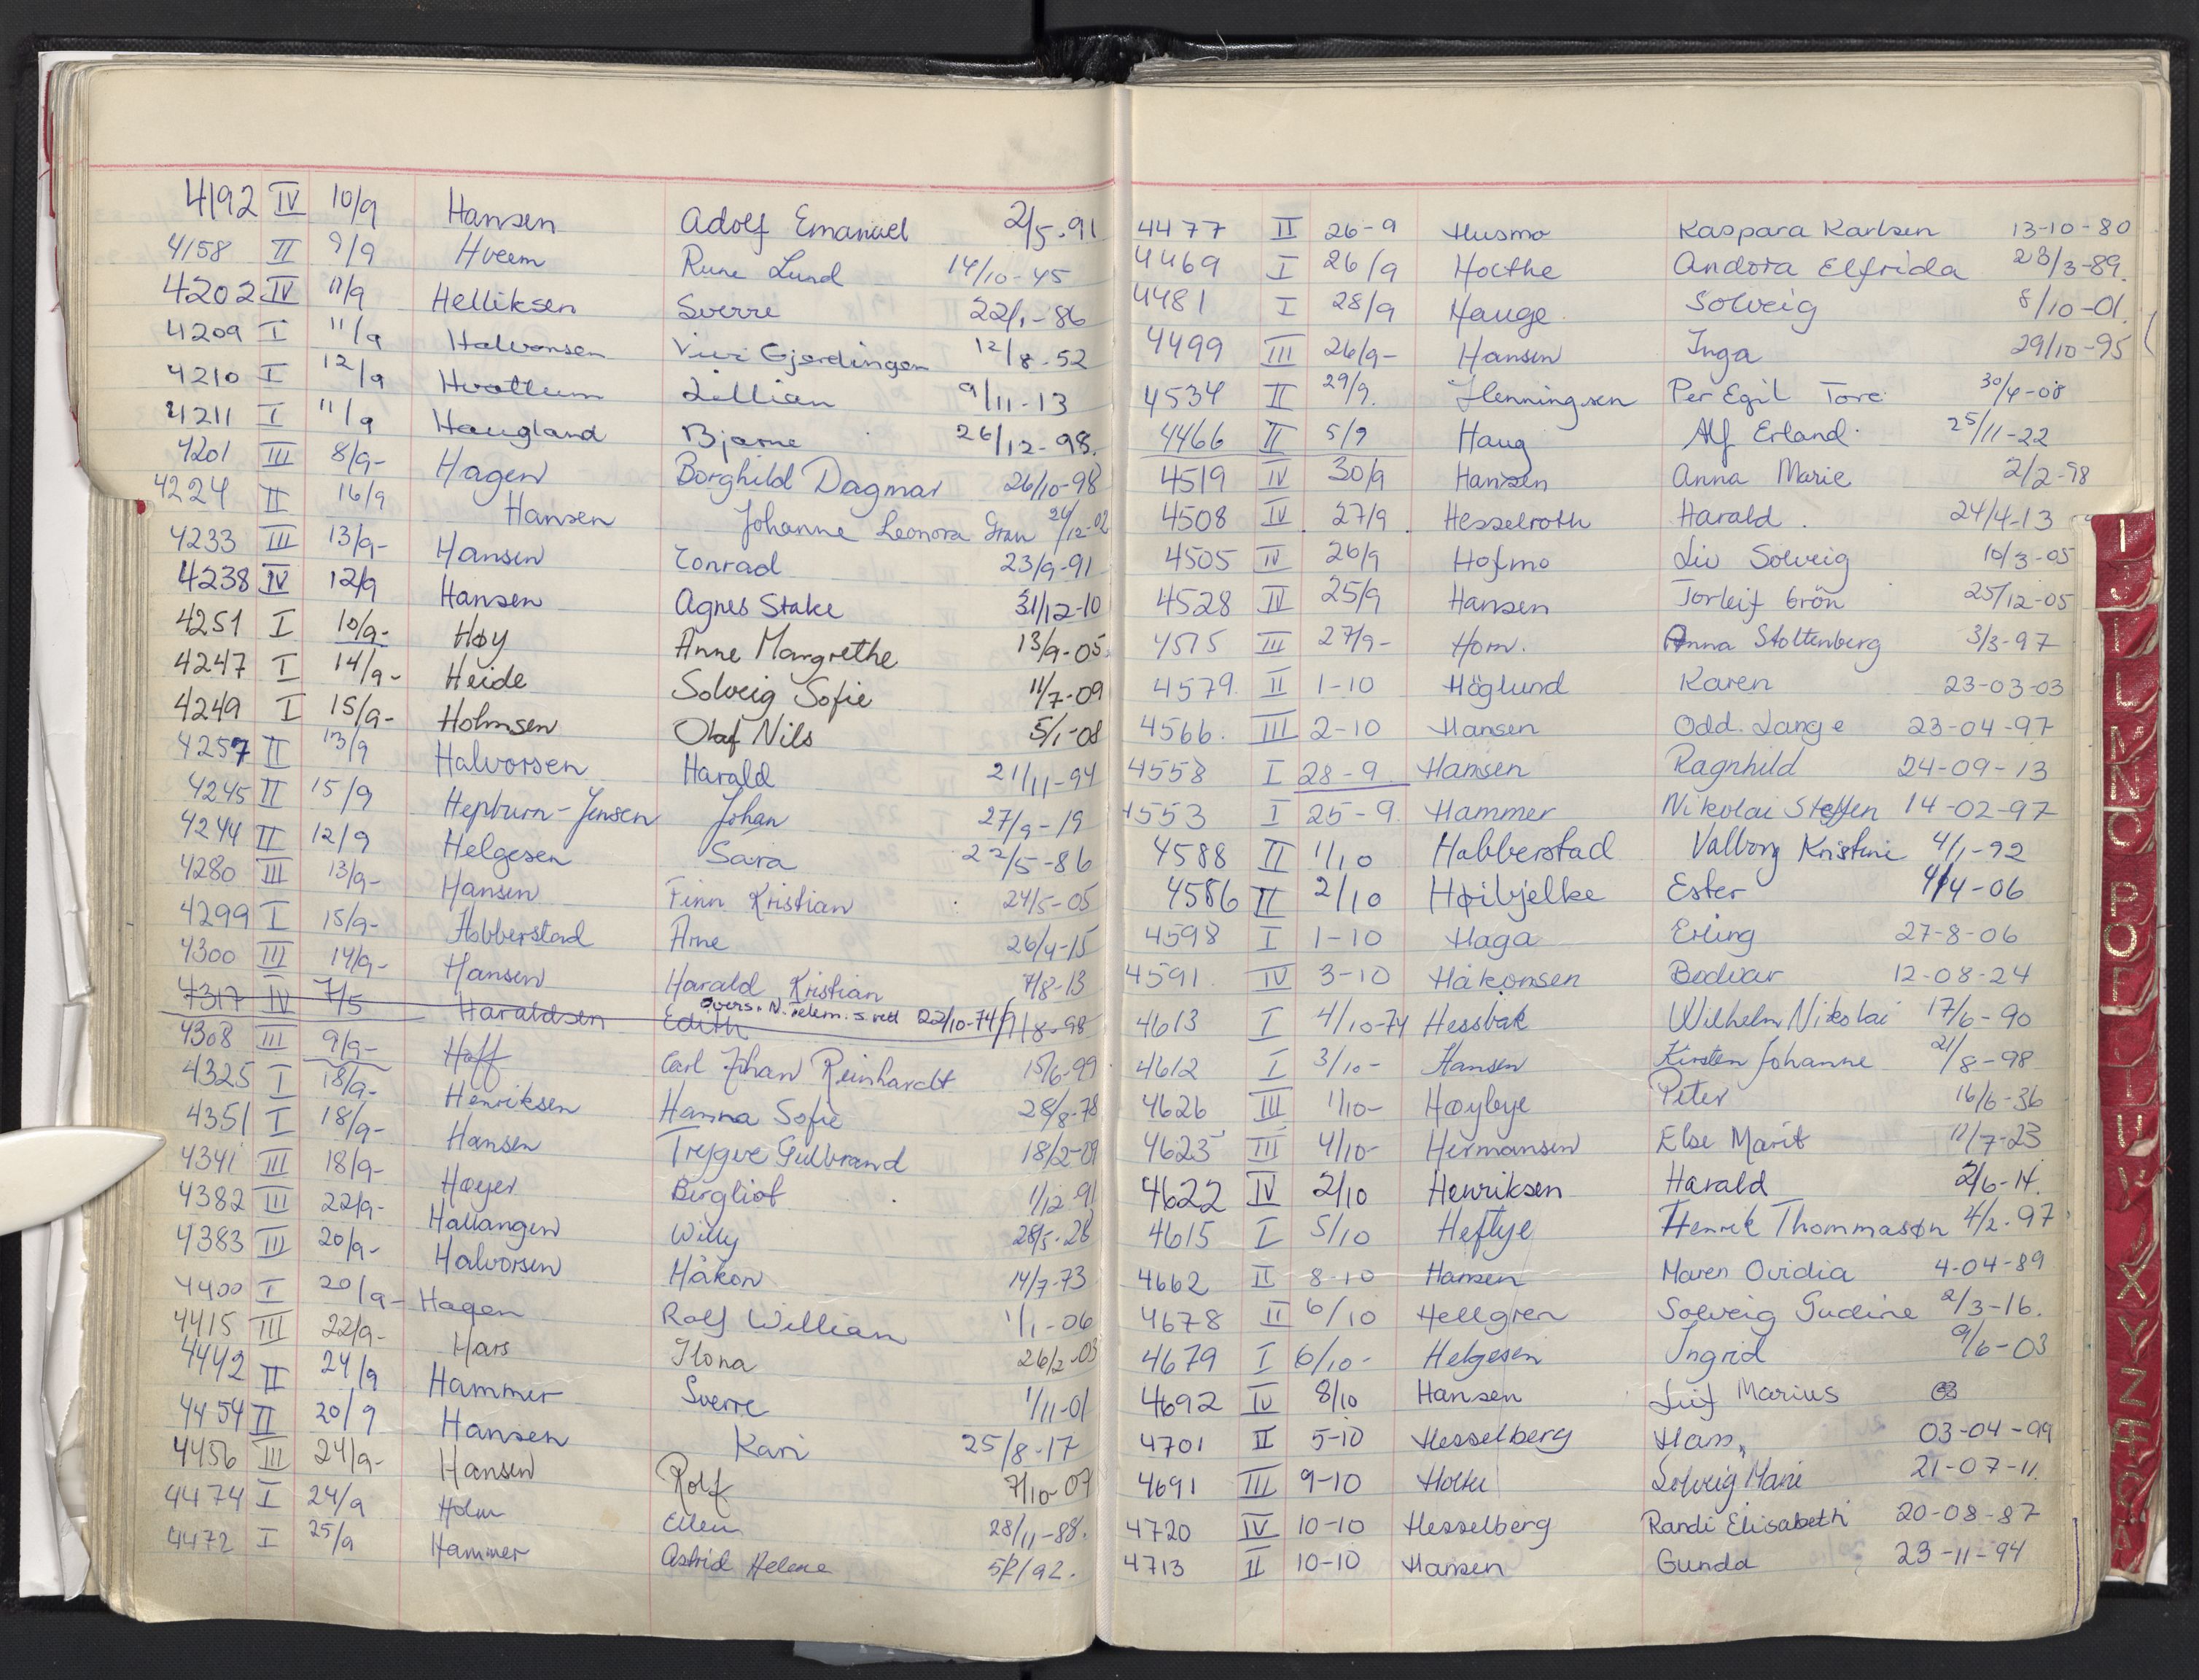 4192 IV 10/9 Hansen Adolf Emanuel 2/5-91
4158 II 9/9 Hveem Rune Lund 14/10-45
4202 IV 11/9 Helliksen Sverre 22/1-86
4209 I 11/9 Halvorsen Vivi Gjerdingen 12/8-52
4210 I 12/9 Hvattum Lillian 9/11-13
4211 I 11/9 Haugland Bjarne 26/12-98.
4201 III 8/9- Hagen Borghild Dagmar 26/10-98
4224 II 16/9 Hansen Johanne Leonora Gran 24/12-02
4233 III 13/9- Hansen Conrad 23/9-91
4238 IV 12/9 Hansen Agnes Stake 31/12-10
4251 I 10/9- Høy Anne Margrethe 13/9-05
4247 I 14/9- Heide Solveig Sofie 11/7-09
4249 I 15/9- Holmsen Olaf Nils 5/1-08
4257 II 13/9 Halvorsen Harald 21/11-94
4245 II 15/9 Hepburn-Jensen Johan 27/9-19
4244 II 12/9 Helgesen Sara 22/5-86
4280 III 13/9- Hansen Finn Kristian 24/5-05
4299 I 15/9- Habberstad Arne 26/4-15
4300 III 14/9- Hansen Harald Kristian 7/8-13
overs. N. Telem. s. rett 22/10-74
4317 IV 7/5 Haraldsen Edith 9/8-98
4308 III 9/9- Hoff Carl Johan Reinhardt 15/6-99
4325 I 18/9- Henriksen Hanna Sofie 28/8-78
4351 I 18/9- Hansen Trygve Gulbrand 18/2-09
4341 III 18/9- Høyer Bergliot 1/12-91
4382 III 22/9- Hallangen Willy 28/5-26
4383 III 20/9- Halvorsen Håkon 14/7-73
4400 I 20/9- Hagen Rolf William 1/1-06
4415 III 22/9- Hars Ilona 26/2-03
4442 II 24/9 Hammer Sverre 1/11-01
4454 II 20/9 Hansen Kari 25/8-17
4456 III 24/9- Hansen Rolf 7/10-07
4474 I 24/9 Holm Ellen 28/11-88.
4472 I 25/9 Hammer Astrid Helene 5/2/92.
4477 II 26-9 Husmo Kaspara Karlsen 13-10-80
4469 I 26/9 Holthe Andora Elfrida 23/3-89.
4481 I 28/9 Hauge Solveig 8/10-01.
4499 III 26/9- Hansen Inga 29/10-95
4534 II 29/9. Henningsen Per Egil Tore 30/4-08
4466 II 5/9 Haug Alf Erland 25/11-22
4519 IV 30/9 Hansen Anna Marie 2/2-98
4508 IV 27/9 Hesselroth Harald 24/4-13
4505 IV 26/9 Hofmo Liv Solveig 10/3-05
4528 IV 25/9 Hansen Torleif Grön 25/12-05
4515 III 27/9- Horn. Anna Stoltenberg 3/3-97
4579 II 1-10 Höglund Karen 23-03-03
4566. III 2-10 Hansen Odd. Lange 23-04-97
4558 I 28-9 Hansen Ragnhild 24-09-13
4553 I 25-9 Hammer Nikolai Steffen 14-02-97
4588 II 1/10 Habberstad Valborg Kristine 4/1-92
4586 II 2/10 Høibjelke Ester 4/4-06
4598 I 1-10 Haga Erling 27-8-06
4591 IV 3-10 Håkonsen Bodvar 12-08-24
4613 I 4/10-74 Hessbak Wilhelm Nikolai 17/6-90
4612 I 3/10- Hansen Kirsten Johanne 21/8-98
4626 III 1/10- Høybye Peter 16/6-36
4623 III 4/10- Hermansen Else Marit 11/7-23
4622 IV 2/10 Henriksen Harald 2/6-14.
4615 I 5/10 Heftye Henrik Thommasøn 4/2-97
4662 II 8-10 Hansen Maren Ovidia 4-04-89
4678 II 6/10 Hellgren Solveig Gudine 2/3-16.
4679 I 6/10- Helgesen Ingrid 9/6-03
4692 IV 8/10 Hansen Leif Marius
4701 II 5-10 Hesselberg Hans 03-04-99
4691 III 9-10 Holte Solveig Marie 21-07-11.
4720 IV 10-10 Hesselberg Randi Elisabeth 20-08-87
4713 II 10-10 Hansen Gunda 23-11-94
I
J
L
N
O
P
X
Y
Z
Æ
Ø